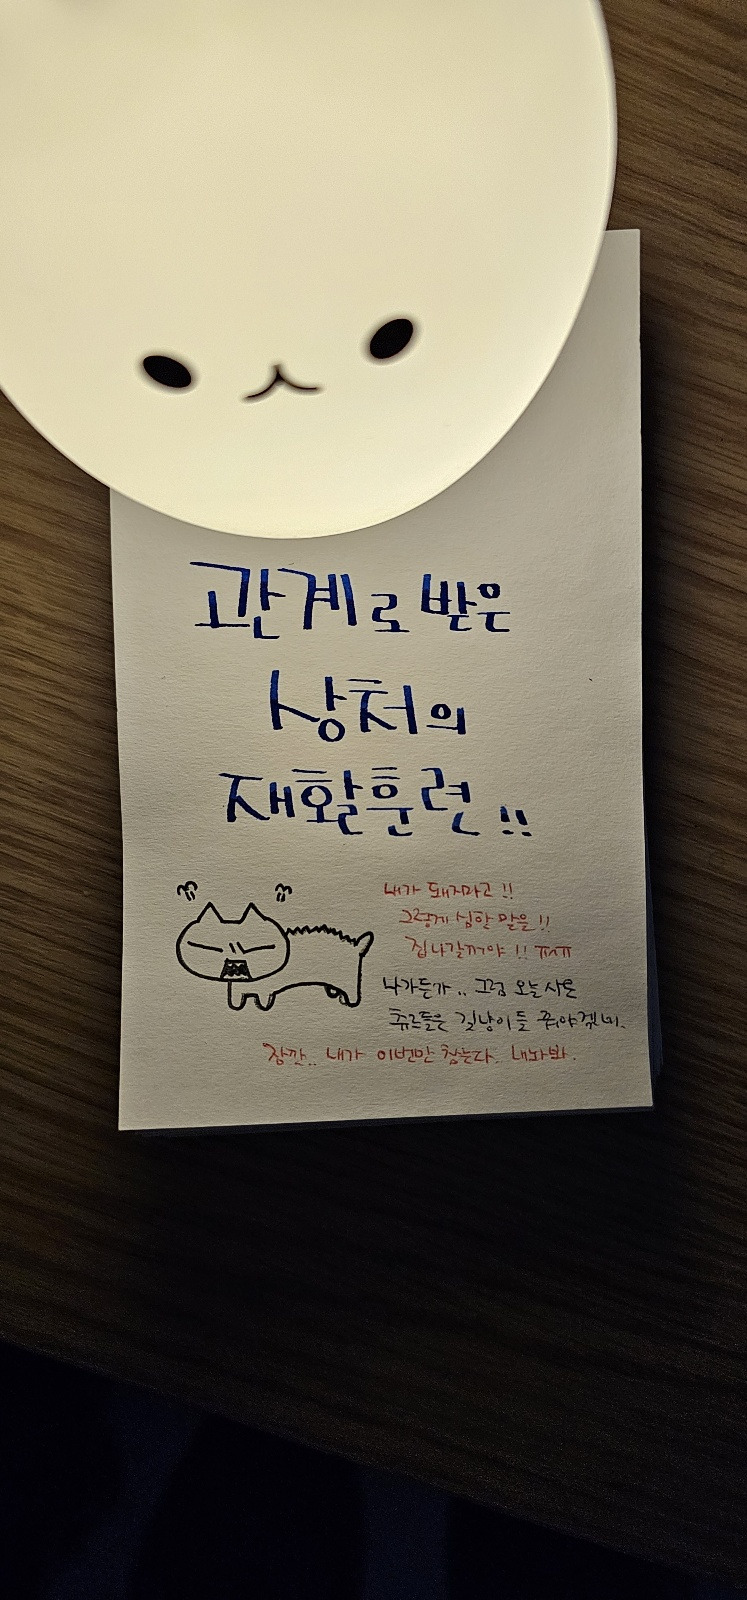 관계로 받은
상처의
재활훈련!!
내가 돼지라고!!
그렇게 심할 말을!!
집나갈꺼야!! ㅠㅅㅠ
나가든가.. 그럼 오늘 사온
츄르들은 길냥이들 줘야겠네.
잠깐.. 내가 이번만 참는다. 내놔봐.